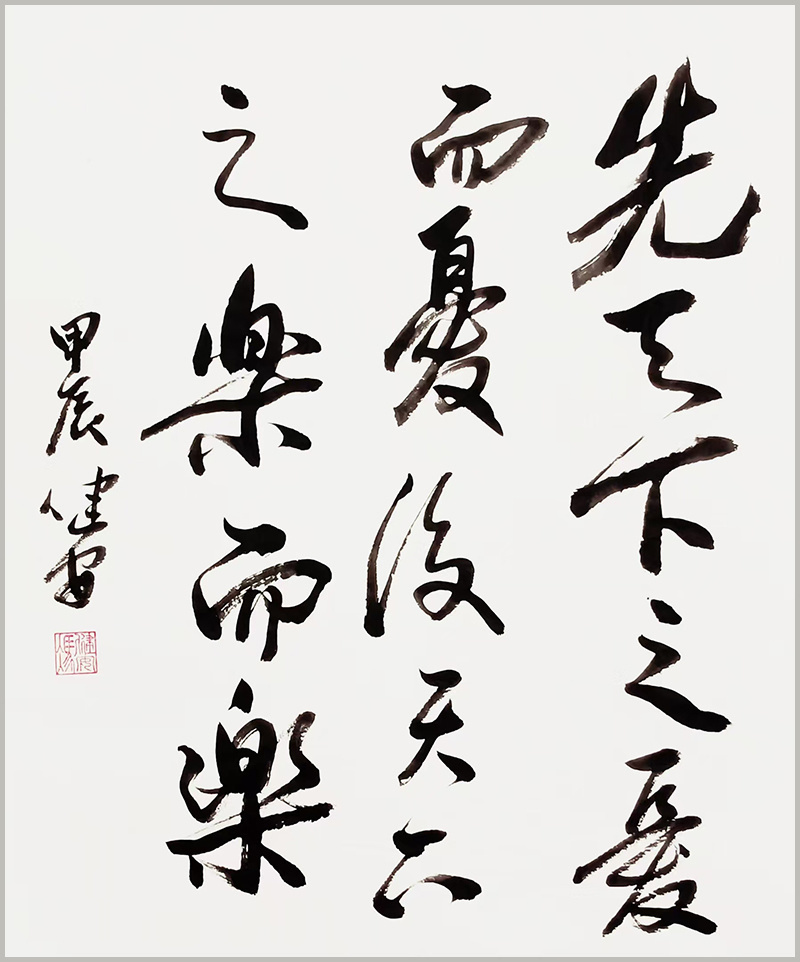 先天下之憂
而憂後天下
之樂而樂
甲辰健安